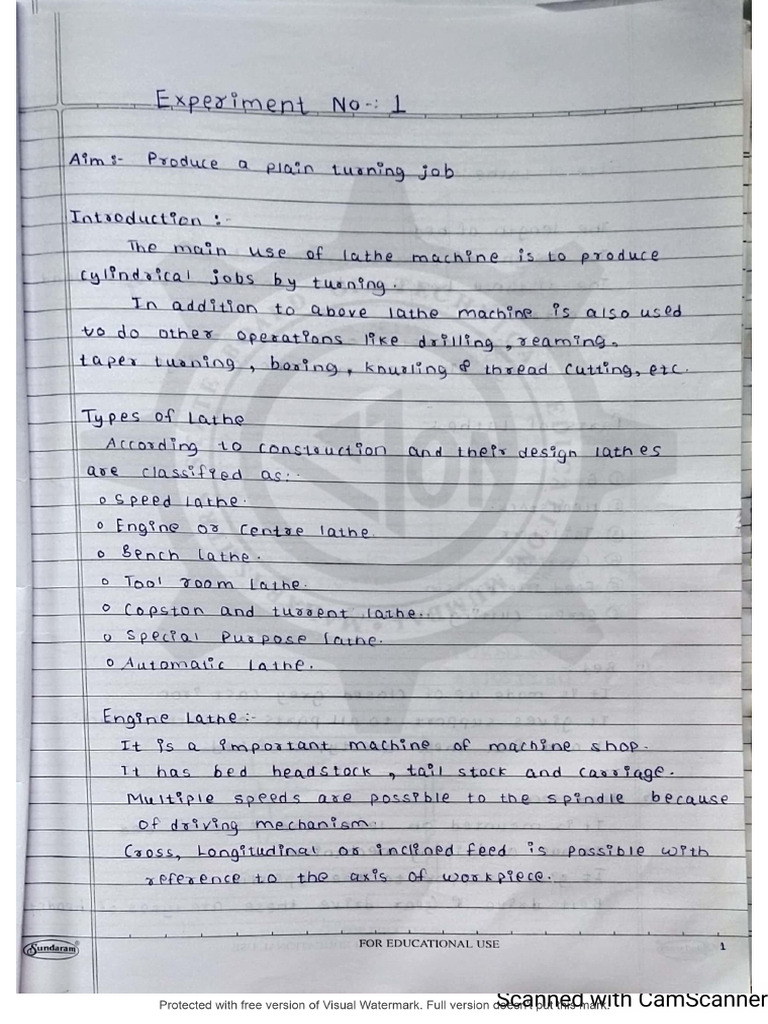 Experiment No-: 1
Aim :- Produce a plain turning job
Introduction :-
The main use of lathe machine is to produce
cylindrical jobs by turning.
In addition to above lathe machine is also used
to do other operations like drilling, reaming,
taper turning, boring, knurling & thread cutting, etc.
Types of Lathe
According to construction and their design lathes
are classified as:-
o Speed lathe.
o Engine or Centre lathe.
o Bench lathe.
o Tool room lathe.
o Capston and turrent lathe.
o Special Purpose lathe.
o Automatic lathe.
Engine Lathe :-
It is a important machine of machine shop.
It has bed headstock, tail stock and carriage.
Multiple speeds are possible to the spindle because
of driving mechanism.
Cross, Longitudinal or inclined feed is possible with
reference to the axis of workpiece.
Sundaram
FOR EDUCATIONAL USE
1
Protected with free version of Visual Watermark. Full version doesn't put this mark.
Scanned with CamScanner